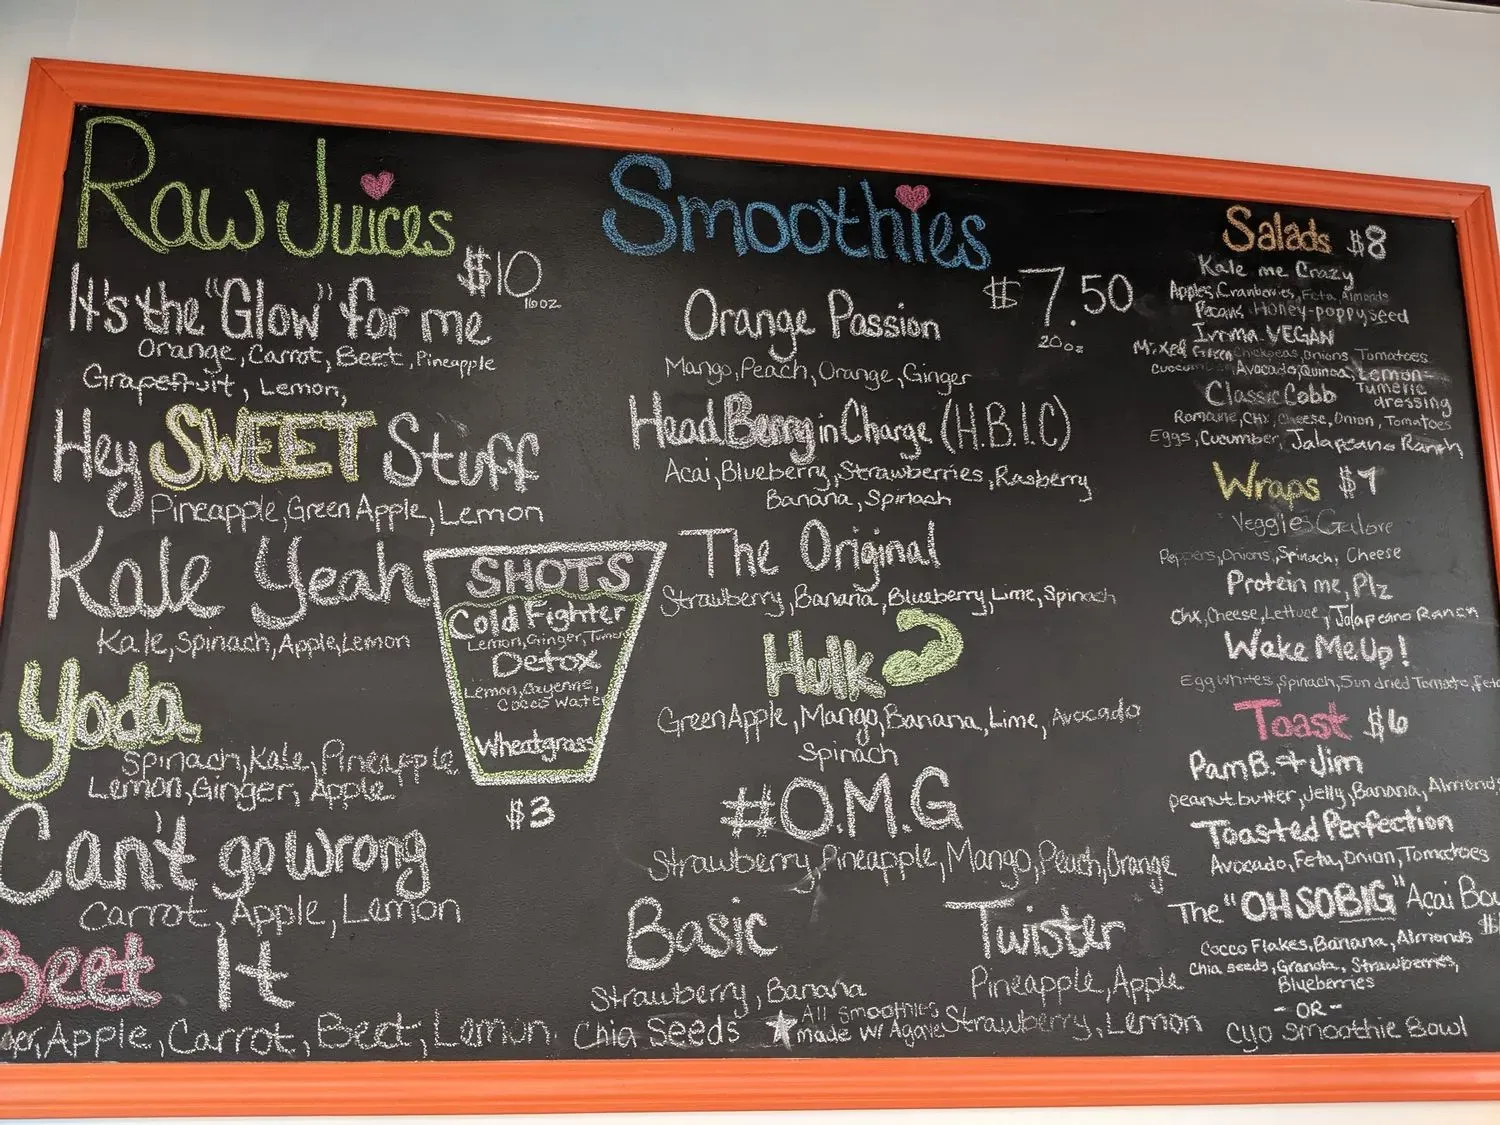 Raw Juices
$10
16oz
It's the "Glow" for me
Orange, Carrot, Beet, Pineapple
Grapefruit, Lemon,
Hey SWEET Stuff
Pineapple, Green Apple, Lemon
Kale Yeah
Kale, Spinach, Apple, Lemon
Yoda
Spinach, Kale, Pineapple
Lemon, Ginger, Apple
Can't go wrong
Carrot, Apple, Lemon
Beet It
Apple, Carrot, Beet, Lemon
SHOTS
Cold Fighter
Lemon, Ginger,
Detox
Lemon, Cayenne,
Cocco Water
Wheatgrass
$3
Smoothies
$7.50
20oz
Orange Passion
Mango, Peach, Orange, Ginger
Head Berry in Charge (H.B.I.C)
Acai, Blueberry, Strawberries, Rasberry
Banana, Spinach
The Original
Strawberry, Banana, Blueberry, Lime, Spinach
Hulk
Green Apple, Mango, Banana, Lime, Avocado
Spinach
#O.M.G
Strawberry, Pineapple, Mango, Peach, Orange
Basic
Strawberry, Banana
Chia Seeds
All Smoothies
made w/ Agave
Twister
Pineapple, Apple
Strawberry, Lemon
Salads $8
Kale me Crazy
Apples, Cranberries, Feta, Almonds
Pecans Honey-poppyseed
Imma VEGAN
Mixed Green Chickpeas, Onions, Tomatoes
Avocado, Quinoa, Lemon-
Tumeric
dressing
Classic Cobb
Romaine, Chx, Cheese, Onion, Tomatoes
Eggs, Cucumber, Jalapeano Ranch
Wraps
Veggies Galore
Peppers, Onions, Spinach, Cheese
Protein me, Plz
Chx, Cheese, Lettuce, Jalapeano Ranch
Wake Me Up!
Egg Whites, Spinach, Sun dried Tomato, Feta
Toast $6
Pam B. & Jim
peanut butter, Jelly, Banana, Almonds
Toasted Perfection
Avocado, Feta, Onion, Tomatoes
The "OH SO BIG" Açai
Cocco Flakes, Banana, Almonds
Chia seeds, Granola, Strawberries,
Blueberries
- OR -
Cyo Smoothie Bowl